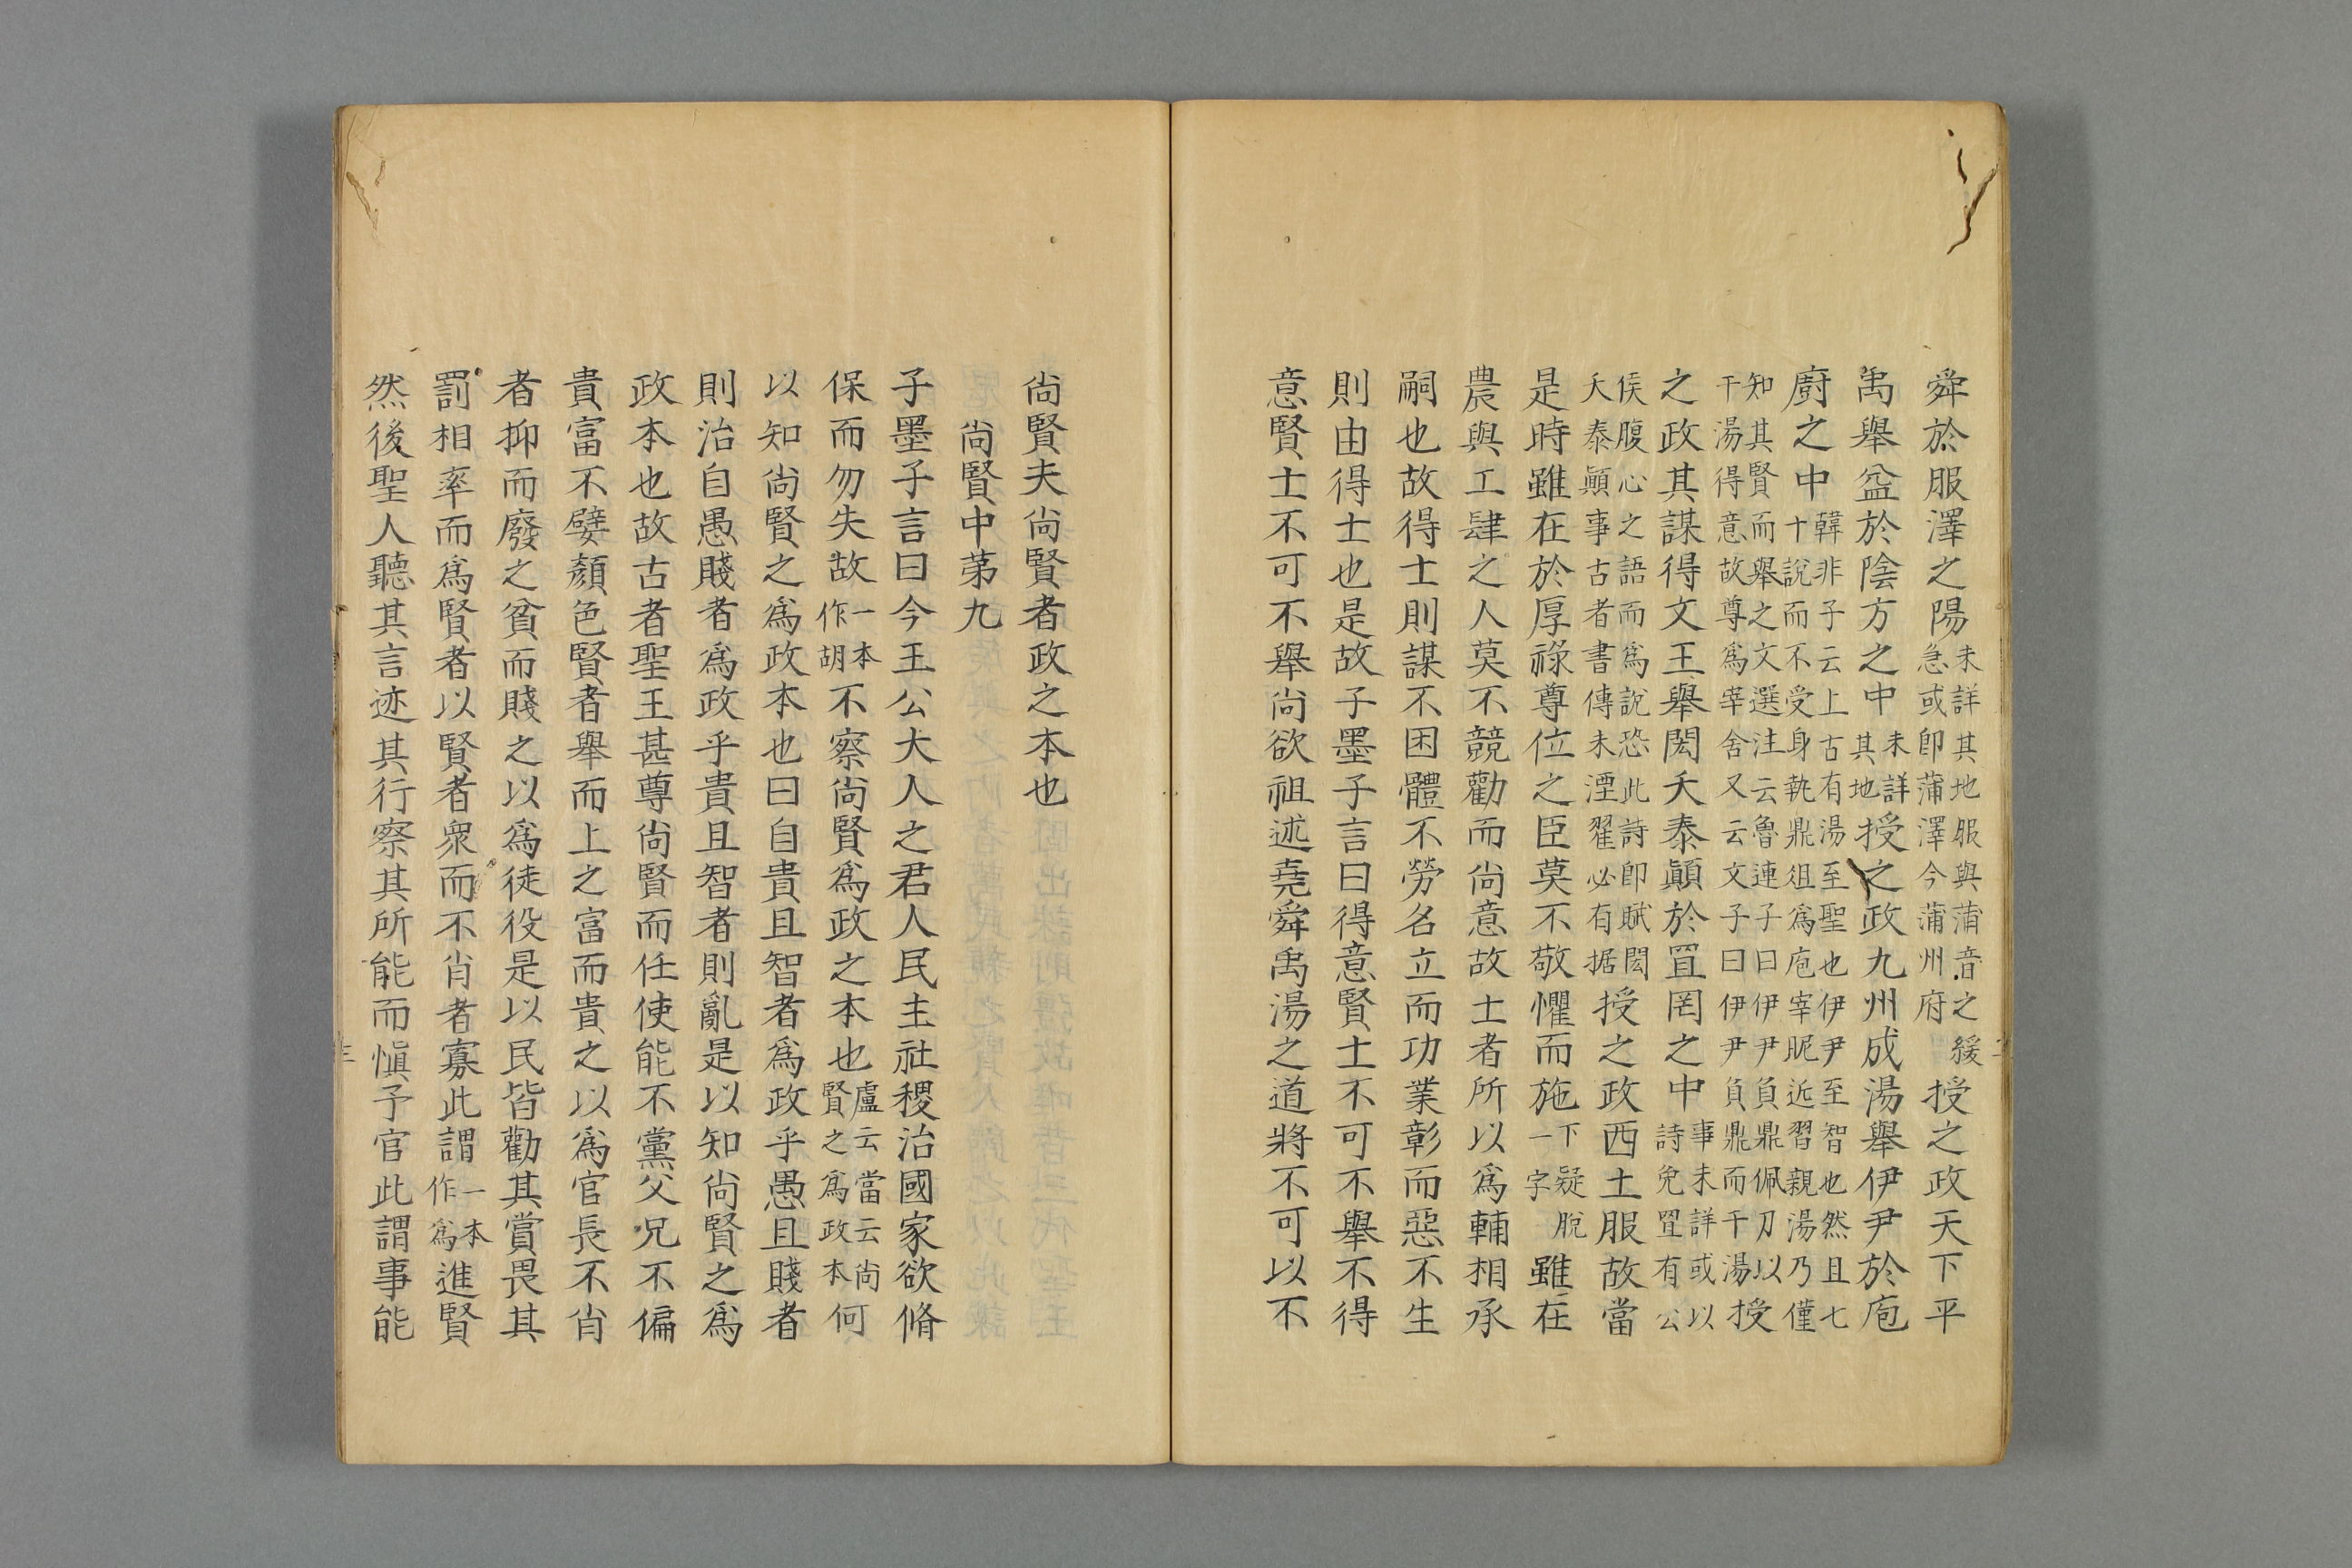 舜於服澤之陽未詳其地服與蒲音之緩急或卽蒲澤今蒲州府授之政天下平
禹舉益於陰方之中未詳其地授之政九州成湯舉伊尹於庖
廚之中韓非子云上古有湯至聖也伊尹至智也然且七十說而不受身執鼎俎爲庖宰昵近習親湯乃僅
知其賢而舉之文選注云魯連子曰伊尹負鼎佩刀以干湯得意故尊爲宰舍又云文子曰伊尹負鼎而干湯授
之政其謀得文王舉閎夭泰顚於罝罔之中事未詳或以詩免罝有公
侯腹心之語而爲說恐此詩卽賦閎夭泰顚事古者書傳未湮翟必有据授之政西土服故當
是時雖在於厚祿尊位之臣莫不敬懼而施下疑脫一字雖在
農與工肆之人莫不競勸而尙意故士者所以爲輔相承
嗣也故得士則謀不困體不勞名立而功業彰而惡不生
則由得士也是故子墨子言曰得意賢士不可不舉不得
意賢士不可不舉尙欲祖述堯舜禹湯之道將不可以不
尙賢夫尙賢者政之本也
尙賢中苐九
子墨子言曰今王公大人之君人民主社稷治國家欲脩
保而勿失故一本作胡不察尙賢爲政之本也盧云當云尙賢之爲政本何
以知尙賢之爲政本也曰自貴且智者爲政乎愚且賤者
則治自愚賤者爲政乎貴且智者則亂是以知尙賢之爲
政本也故古者聖王甚尊尙賢而任使能不黨父兄不偏
貴富不嬖顏色賢者舉而上之富而貴之以爲官長不肖
者抑而廢之貧而賤之以爲徒役是以民皆勸其賞畏其
罰相率而爲賢者以賢者衆而不肖者寡此謂一本作爲進賢
然後聖人聽其言迹其行察其所能而愼予官此謂事能